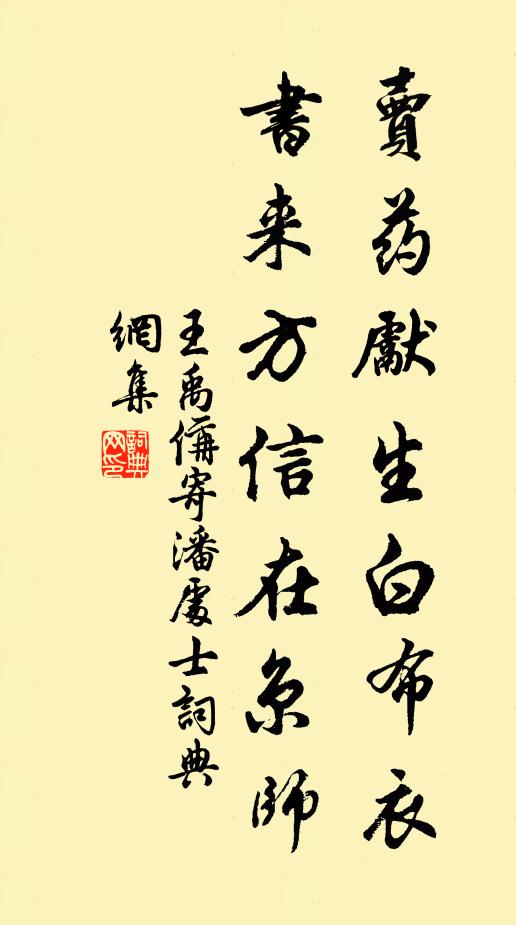 賣药獻生白布衣
書来方信在京師
王禹偁寄潘處士詞典
網集
詞典網印